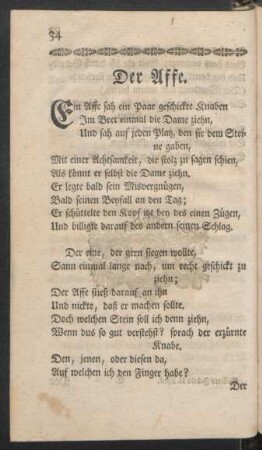 34
Der Affe.
Ein Affe sah ein Paar geschickte Knaben
Im Bret einmal die Dame ziehn,
Und sah auf jeden Platz, den sie dem Stei-
ne gaben,
Mit einer Achtsamkeit, die stolz zu sagen schien,
Als könnt er selbst die Dame ziehn.
Er legte bald sein Misvergnügen,
Bald seinen Beyfall an den Tag;
Er schüttelte den Kopf itzt bey des einen Zügen,
Und billigte darauf des andern seinen Schlag.
Der eine, der gern siegen wollte,
Sann einmal lange nach, um recht geschickt zu
ziehn;
Der Affe stieß darauf an ihn
Und nickte, daß er machen sollte.
Doch welchen Stein soll ich denn ziehn,
Wenn dus so gut verstehst? sprach der erzürnte
Knabe.
Den, jenen, oder diesen da,
Auf welchen ich den Finger habe?
Der